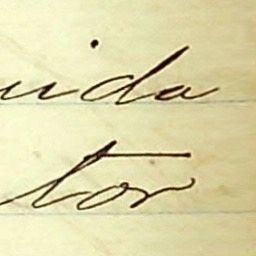 uida
tor